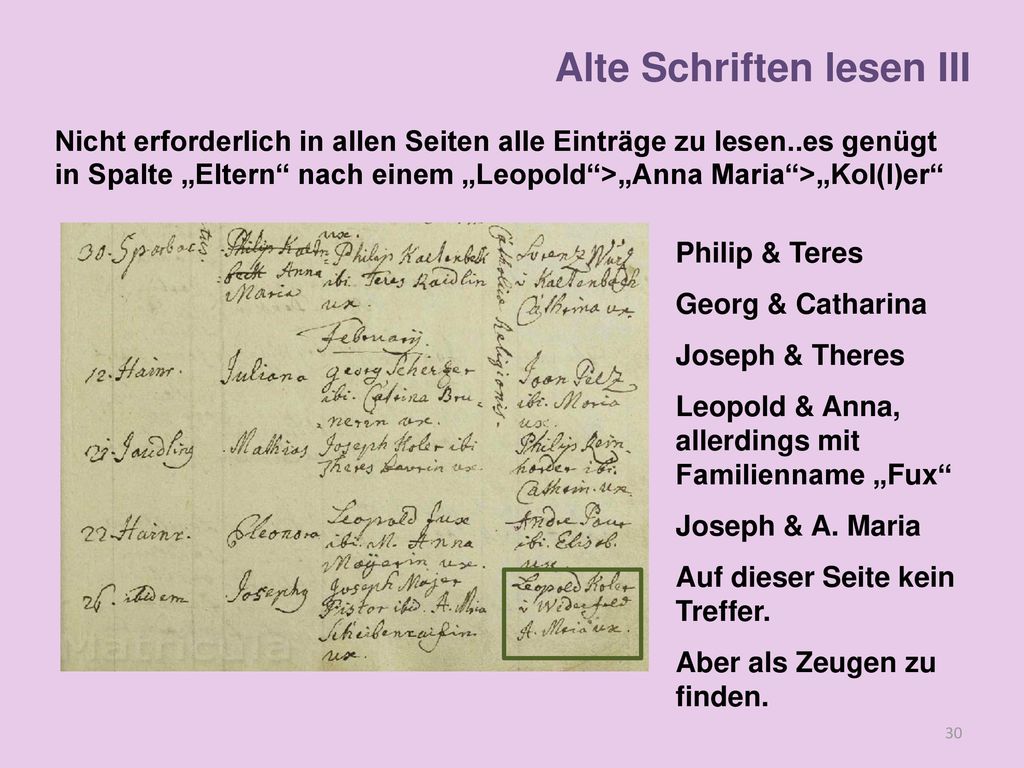 Alte Schriften lesen III
Nicht erforderlich in allen Seiten alle Einträge zu lesen..es genügt
in Spalte „Eltern“ nach einem „Leopold“>„Anna Maria“>„Kol(l)er“
Philip & Teres
Georg & Catharina
Joseph & Theres
Leopold & Anna,
allerdings mit
Familienname „Fux“
Joseph & A. Maria
Auf dieser Seite kein
Treffer.
Aber als Zeugen zu
finden.
ux.
30. Sparbac.
Philip Kaltn-
beck Anna
Maria
Philip Kaltenbek
ibi Teres Raidlin
ux.
Lorentz Würg
i Kaltenbach
Catharina ux.
Catholic Religionis.
February.
12. Hainr.
Juliana
georg Scherzer
ibi. Catrina Bru-
nerin ux.
Joan Pelz
ibi. Maria
ux.
21. Jaudling
Mathias
Joseph Koler ibi
Theres ux.
Philip
ibi.
Catharin. ux.
22. Hainr.
Eleonora
Leopold fux
ibi. M. Anna
Mayerin ux.
Andre Paur
ibi. Elisab.
ux.
26. ibidem
Josephg
Joseph Majer
Pistor ibid. A. Mria
Scheibenreifin
ux.
Leopold Koler
i Widerfeld
A. Mria ux.
Matricula
30